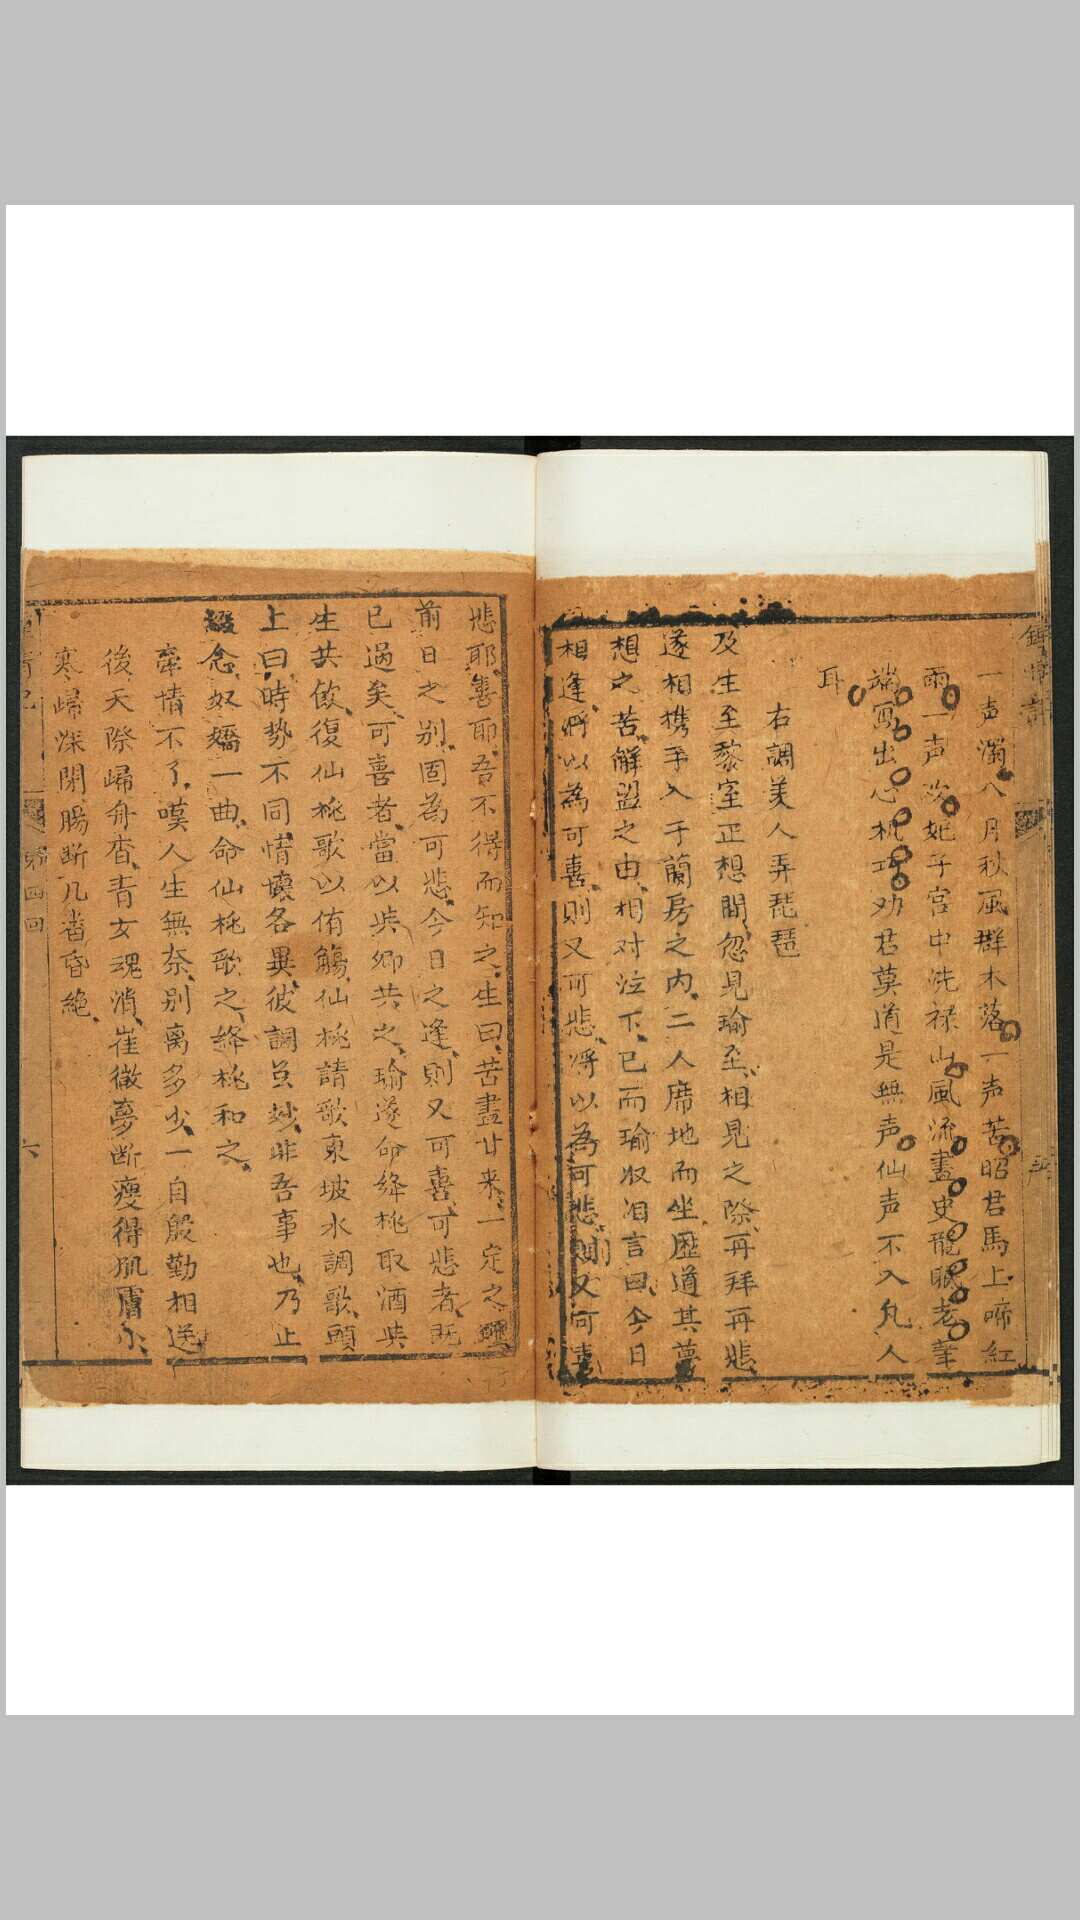 一声濁八月秋風群木落一声苦昭君馬上啼紅
雨一声次妃子宮中洗禄山風流盡史龍眠老筆
端寫出心机巧劝君莫道是無声仙声不入凡人
耳
右調美人弄琵琶
及生至黎室正想間忽見瑜至相見之際再拜再悲
遂相携手入于蘭房之内二人席地而坐歷道其夢
想之苦解盟之由相对泣下已而瑜收泪言曰今日
相逢将以為可喜則又可悲将以為可悲則又可喜
悲耶喜耶吾不得而知之生曰苦盡甘来一定之理
前日之别固為可悲今日之逢則又可喜可悲者既
已過矣可喜者當以與卿共之瑜遂命絳桃取酒與
生共飲復仙桃歌以侑觴仙桃請歌東坡水調歌頭
上曰時势不同情懷各異彼調虽妙非吾事也乃止
綴念奴嬌一曲命仙桃歌之絳桃和之
牽情不了嘆人生無奈别离多少一自殷勤相送
後天際歸舟杳青女魂消崔徽夢断瘦得肌膚小
寒歸深閉腸断几畨昏絶
鍾情記
第四回
六